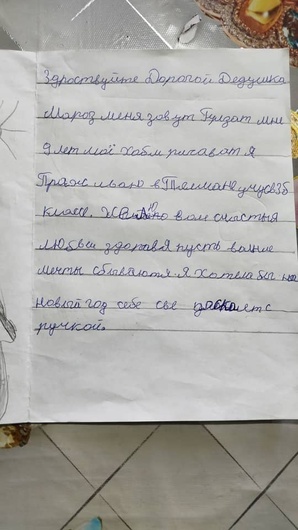 Здроствуйте Дорогой Дедушка
Мароз меня зовут Гулзат мне
9 лет моё хобби рисават Я
Праживаю в Телмане учус в 3б
класе. Желаю вам счастья
любви здоровя пусть ваши
мечты сбываются Я хотела бы на
новый год себе
ручкой.